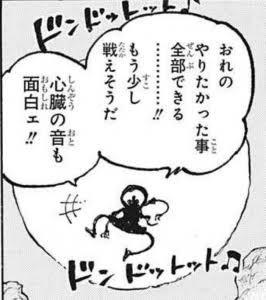 ドンドットット♪
おれの
やりたかった事
全部できる
…………!!
もう少し
戦えそうだ
心臓の音も
面白ェ!!
ドンドットット♫